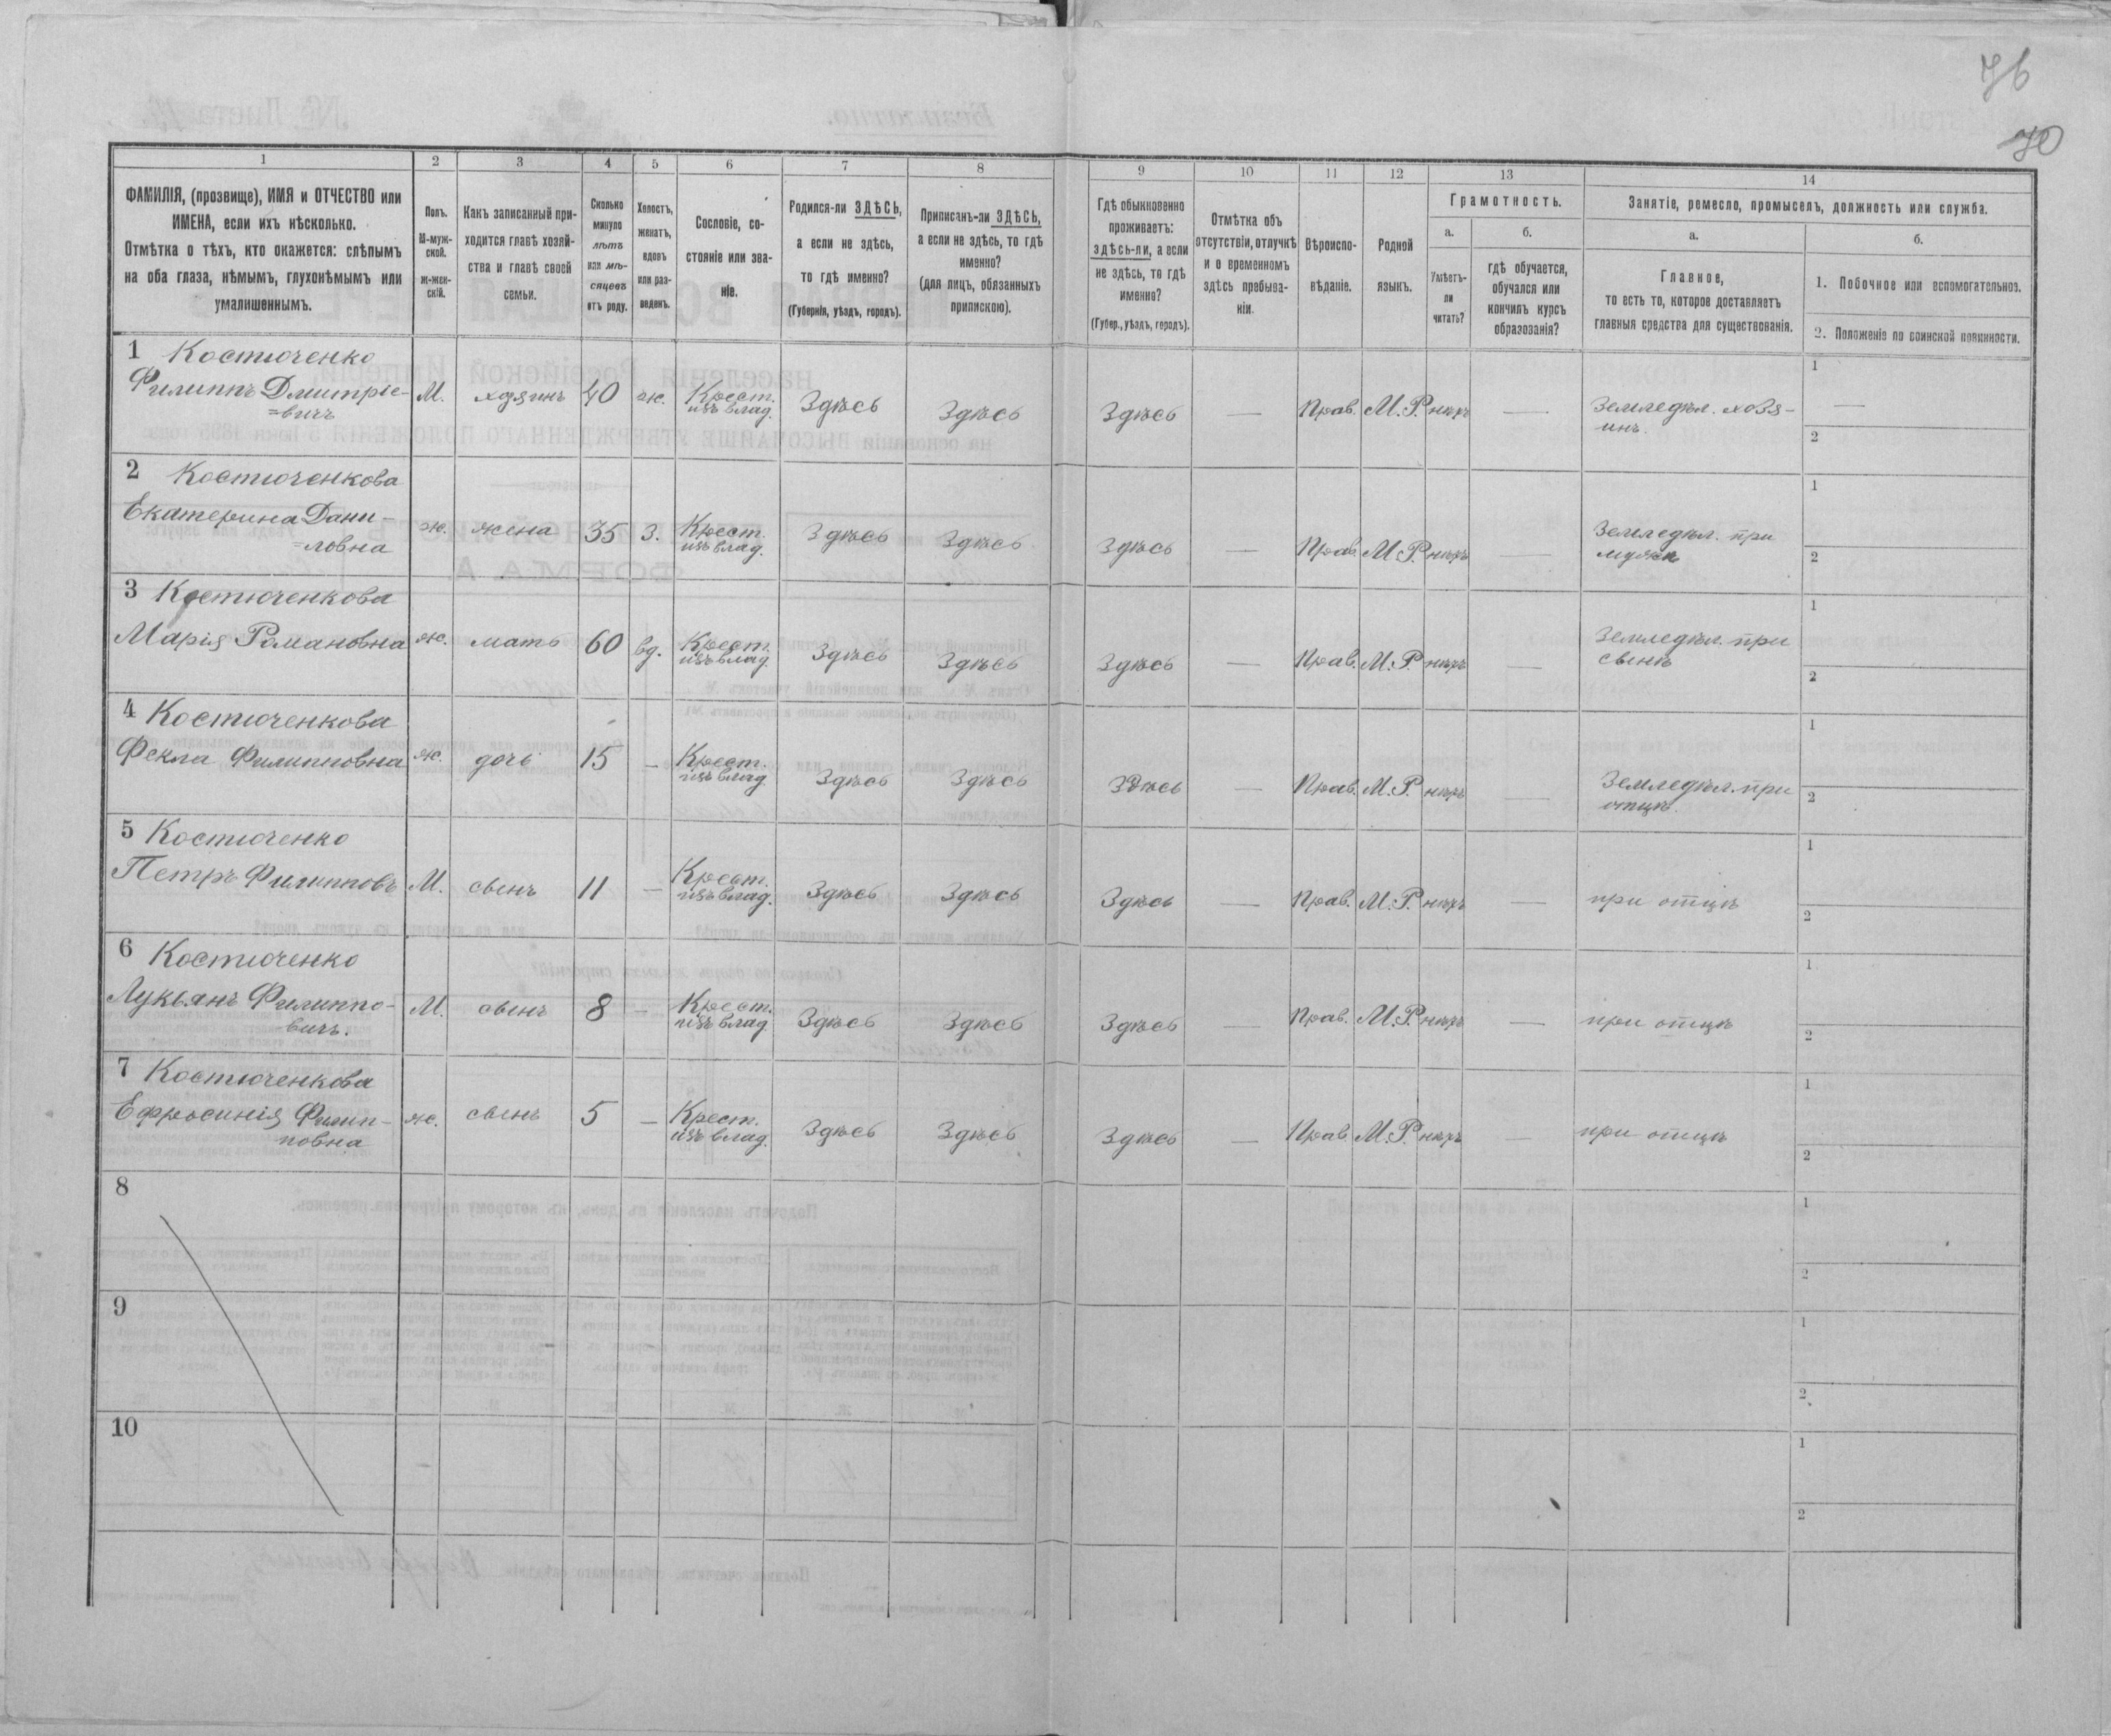 76
70
1 2 3 4 5 6 7 8 9 10 11 12 13 14
ФАМИЛІЯ, (прозвище), ИМЯ и ОТЧЕСТВО или
ИМЕНА, если ихъ нѣсколько.
Отмѣтка о тѣхъ, кто окажется: слѣпымъ
на оба глаза, нѣмымъ, глухонѣмымъ или
умалишеннымъ.
Полъ.
М-муж-
ской.
Ж-жен-
скій.
Какъ записанный при-
ходится главѣ хозяй-
ства и главѣ своей
семьи.
Сколько
минуло
лѣтъ
или мѣ-
сяцевъ
отъ роду.
Холостъ,
женатъ,
вдовъ
или раз-
веденъ.
Сословіе, со-
стояніе или зва-
ніе.
Родился-ли ЗДѢСЬ,
а если не здѣсь,
то гдѣ именно?
(Губернія, уѣздъ, городъ).
Приписанъ-ли ЗДѢСЬ,
а если не здѣсь, то гдѣ
именно?
(для лицъ, обязанныхъ
припискою).
Гдѣ обыкновенно
проживаетъ:
здѣсь-ли, а если
не здѣсь, то гдѣ
именно?
(Губер., уѣздъ, городъ).
Отмѣтка объ
отсутствіи, отлучкѣ
и о временномъ
здѣсь пребыва-
ніи.
Вѣроиспо-
вѣданіе.
Родной
языкъ.
Грамотность.
а.
Умѣетъ-
ли
читать?
б.
гдѣ обучается,
обучался или
кончилъ курсъ
образованія?
Занятіе, ремесло, промыселъ, должность или служба.
а.
Главное,
то есть то, которое доставляетъ
главныя средства для существованія.
б.
1. Побочное или вспомогательное.
2. Положеніе по воинской повинности.
1 Костюченко
Филиппъ Дмитріе-
=вичъ
М. хозяинъ 40 ж. Крест.
изъ влад.
Здѣсь Здѣсь Здѣсь — Прав. М.Р. нѣтъ — Земледѣл. хозя-
инъ.
1 —
2
2 Костюченкова
Екатерина Дани-
=ловна
ж. жена 35 З. Крест.
изъ влад.
Здѣсь Здѣсь Здѣсь — Прав. М.Р. нѣтъ — Земледѣл. при
мужѣ
1
2
3 Костюченкова
Марія Романовна
ж. мать 60 вд. Крест.
изъ влад.
Здѣсь Здѣсь Здѣсь — Прав. М.Р. нѣтъ — Земледѣл. при
сынѣ
1
2
4 Костюченкова
Фекла Филипповна
ж. дочь 15 — Крест.
изъ влад.
Здѣсь Здѣсь Здѣсь — Прав. М.Р. нѣтъ — Земледѣл. при
отцѣ.
1
2
5 Костюченко
Петръ Филипповъ
М. сынъ 11 — Крест.
изъ влад.
Здѣсь Здѣсь Здѣсь — Прав. М.Р. нѣтъ — при отцѣ
1
2
6 Костюченко
Лукьянъ Филиппо-
вичъ.
М. сынъ 8 — Крест.
изъ влад.
Здѣсь Здѣсь Здѣсь — Прав. М.Р. нѣтъ — при отцѣ
1
2
7 Костюченкова
Ефросинія Филип-
повна
ж. сынъ 5 — Крест.
изъ влад.
Здѣсь Здѣсь Здѣсь — Прав. М.Р. нѣтъ — при отцѣ
1
2
8
1
2
9
1
2
10
1
2